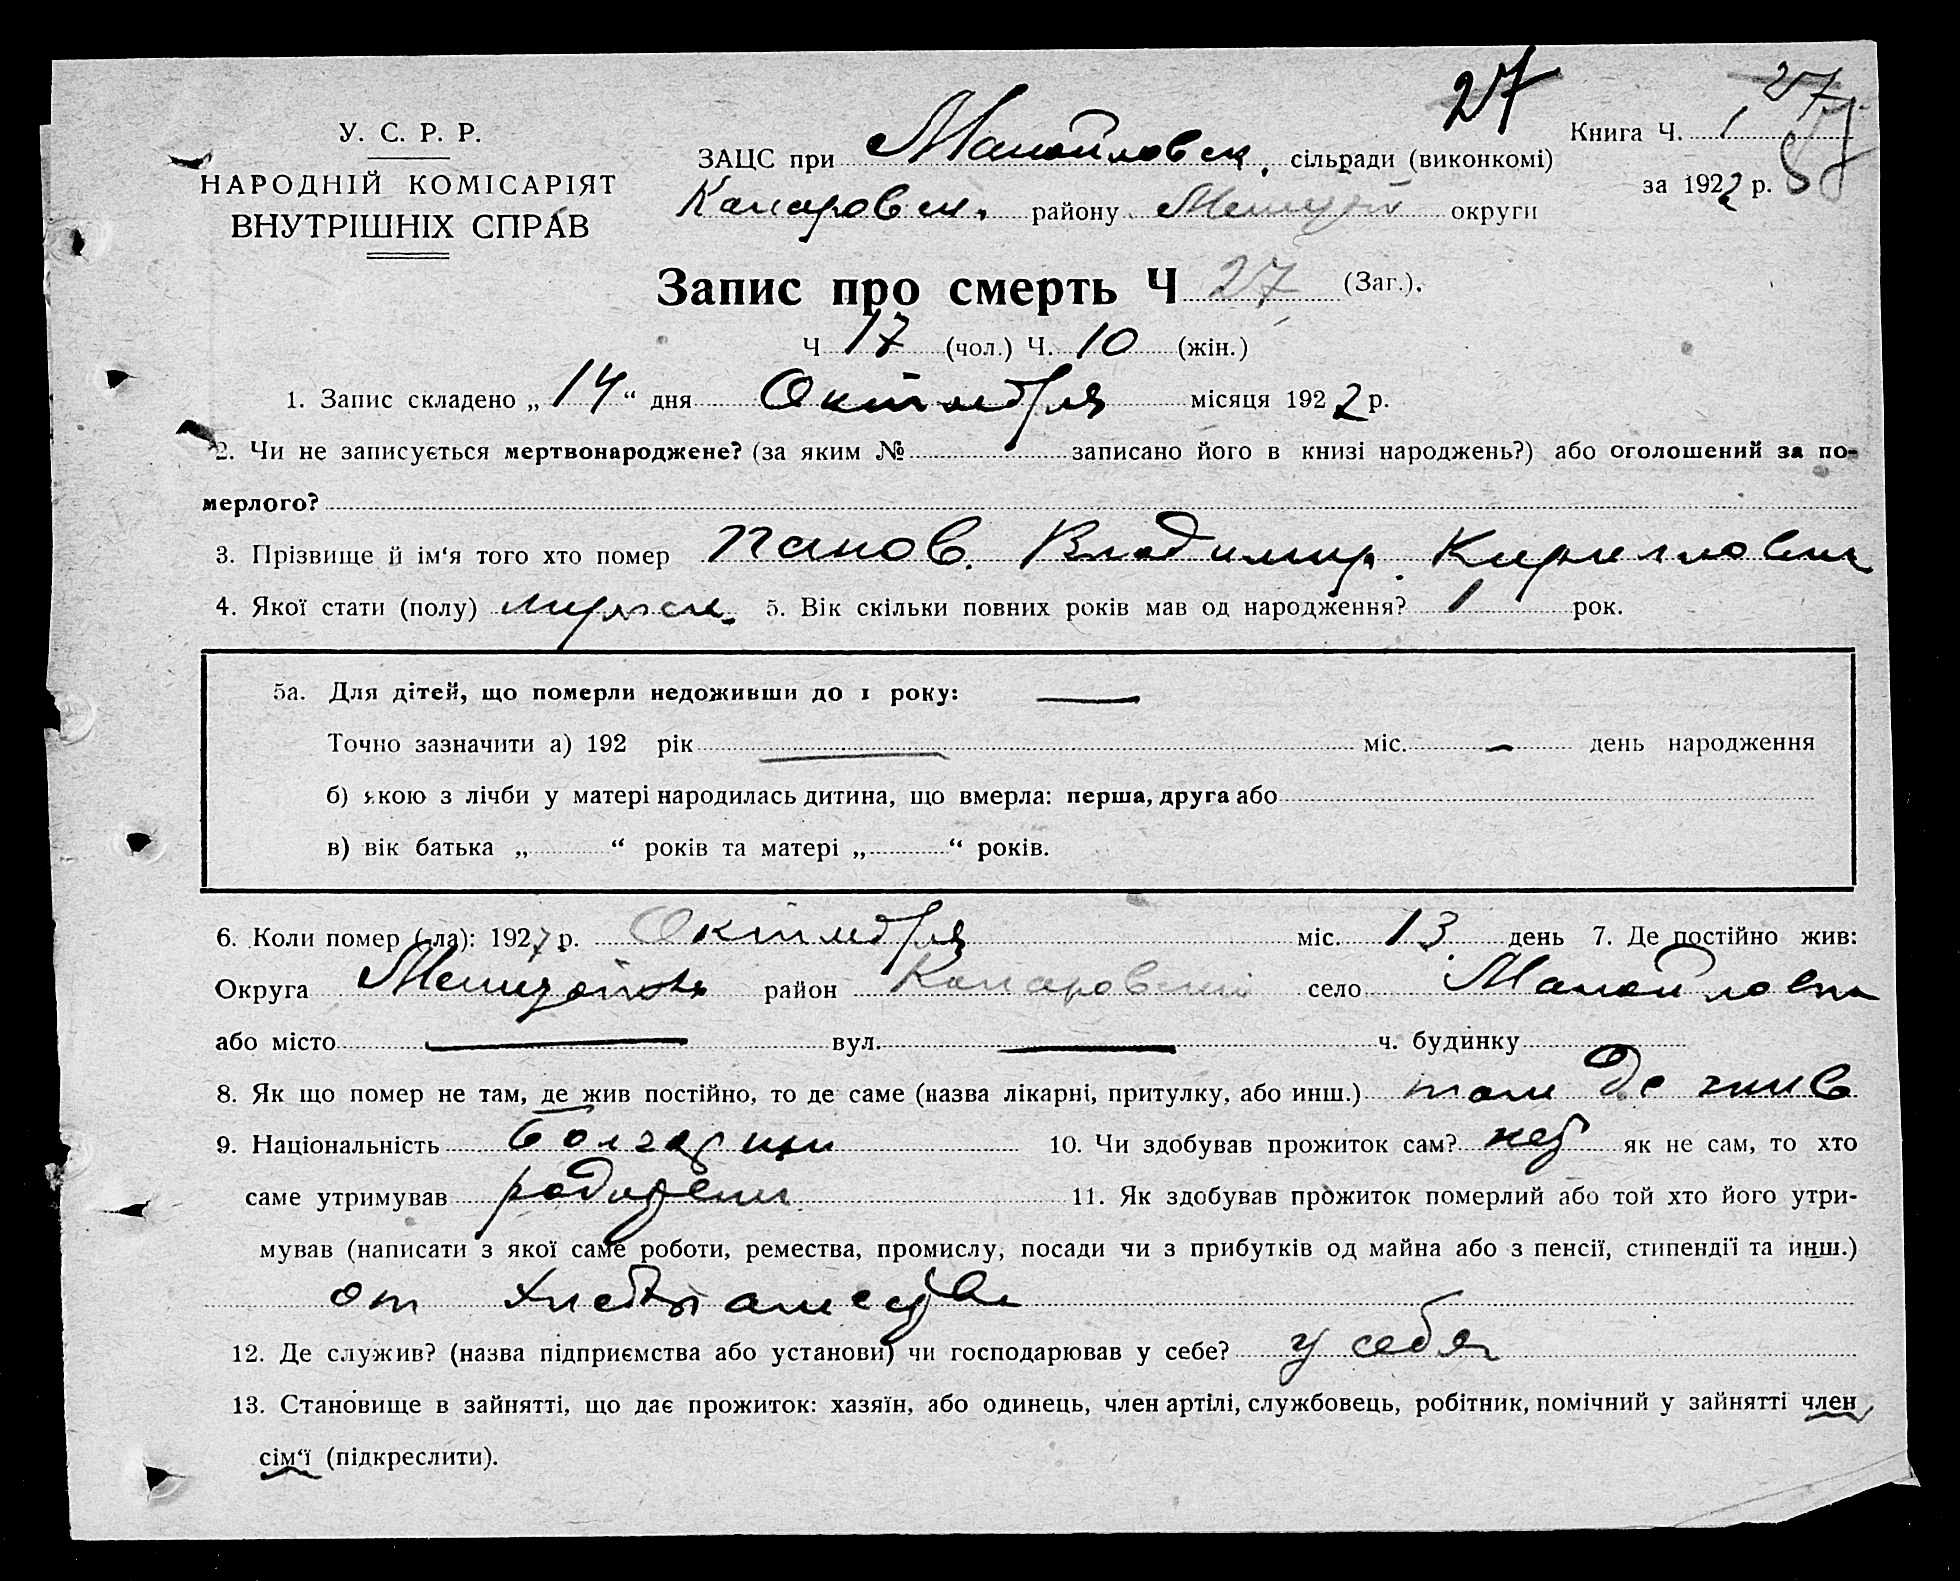 27
27
У. С. Р. Р.
НАРОДНІЙ КОМІСАРІЯТ
ВНУТРІШНІХ СПРАВ
ЗАЦС при Манойловск. сільради (виконкомі)
района районy округи
Книга Ч. 1
за 1922 р.
Запис про смерть Ч 27 (Заг.).
Ч 17 (чол.) Ч. 10 (жін.)
1. Запис складено „ 14 “ дня Октября місяця 1922 р.
2. Чи не записується мертвонароджене? (за яким № записано його в книзі народжень?) або оголошений за по-
мерлого?
3. Прізвище й ім‘я того хто помер Панов. Владимир. Кириллович
4. Якої стати (полу) мужск. 5. Вік скільки повних років мав од народження? 1 рок.
5а. Для дітей, що померли недоживши до 1 року: —
Точно зазначити а) 192 рік — міс. — день народження
б) якою з лічби у матері народилась дитина, що вмерла: перша, друга або
в) вік батька „ “ років та матері „ “ років.
6. Коли помер (-ла): 1927 р. Октября міс. 13 день 7. Де постійно жив:
Округа район село
або місто — вул. — ч. будинку
8. Як що помер не там, де жив постійно, то де саме (назва лікарні, притулку, або инш.) там де жив
9. Національність болгарин 10. Чи здобував прожиток сам? нет як не сам, то хто
саме утримував родители 11. Як здобував прожиток померлий або той хто його утри-
мував (написати з якої саме роботи, ремества, промислу, посади чи з прибутків од майна або з пенсії, стипендії та инш.)
от хлебопашества
12. Де служив? (назва підприємства або установи) чи господарював у себе? у себя
13. Становище в зайнятті, що дає прожиток: хазяїн, або одинець, член артілі, службовець, робітник, помічний у зайнятті член
сім‘ї (підкреслити).